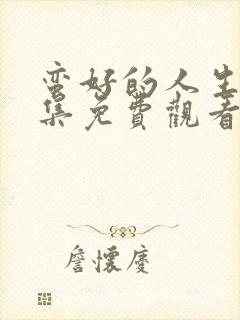 蛮好的人生
集免費觀看
詹懷慶